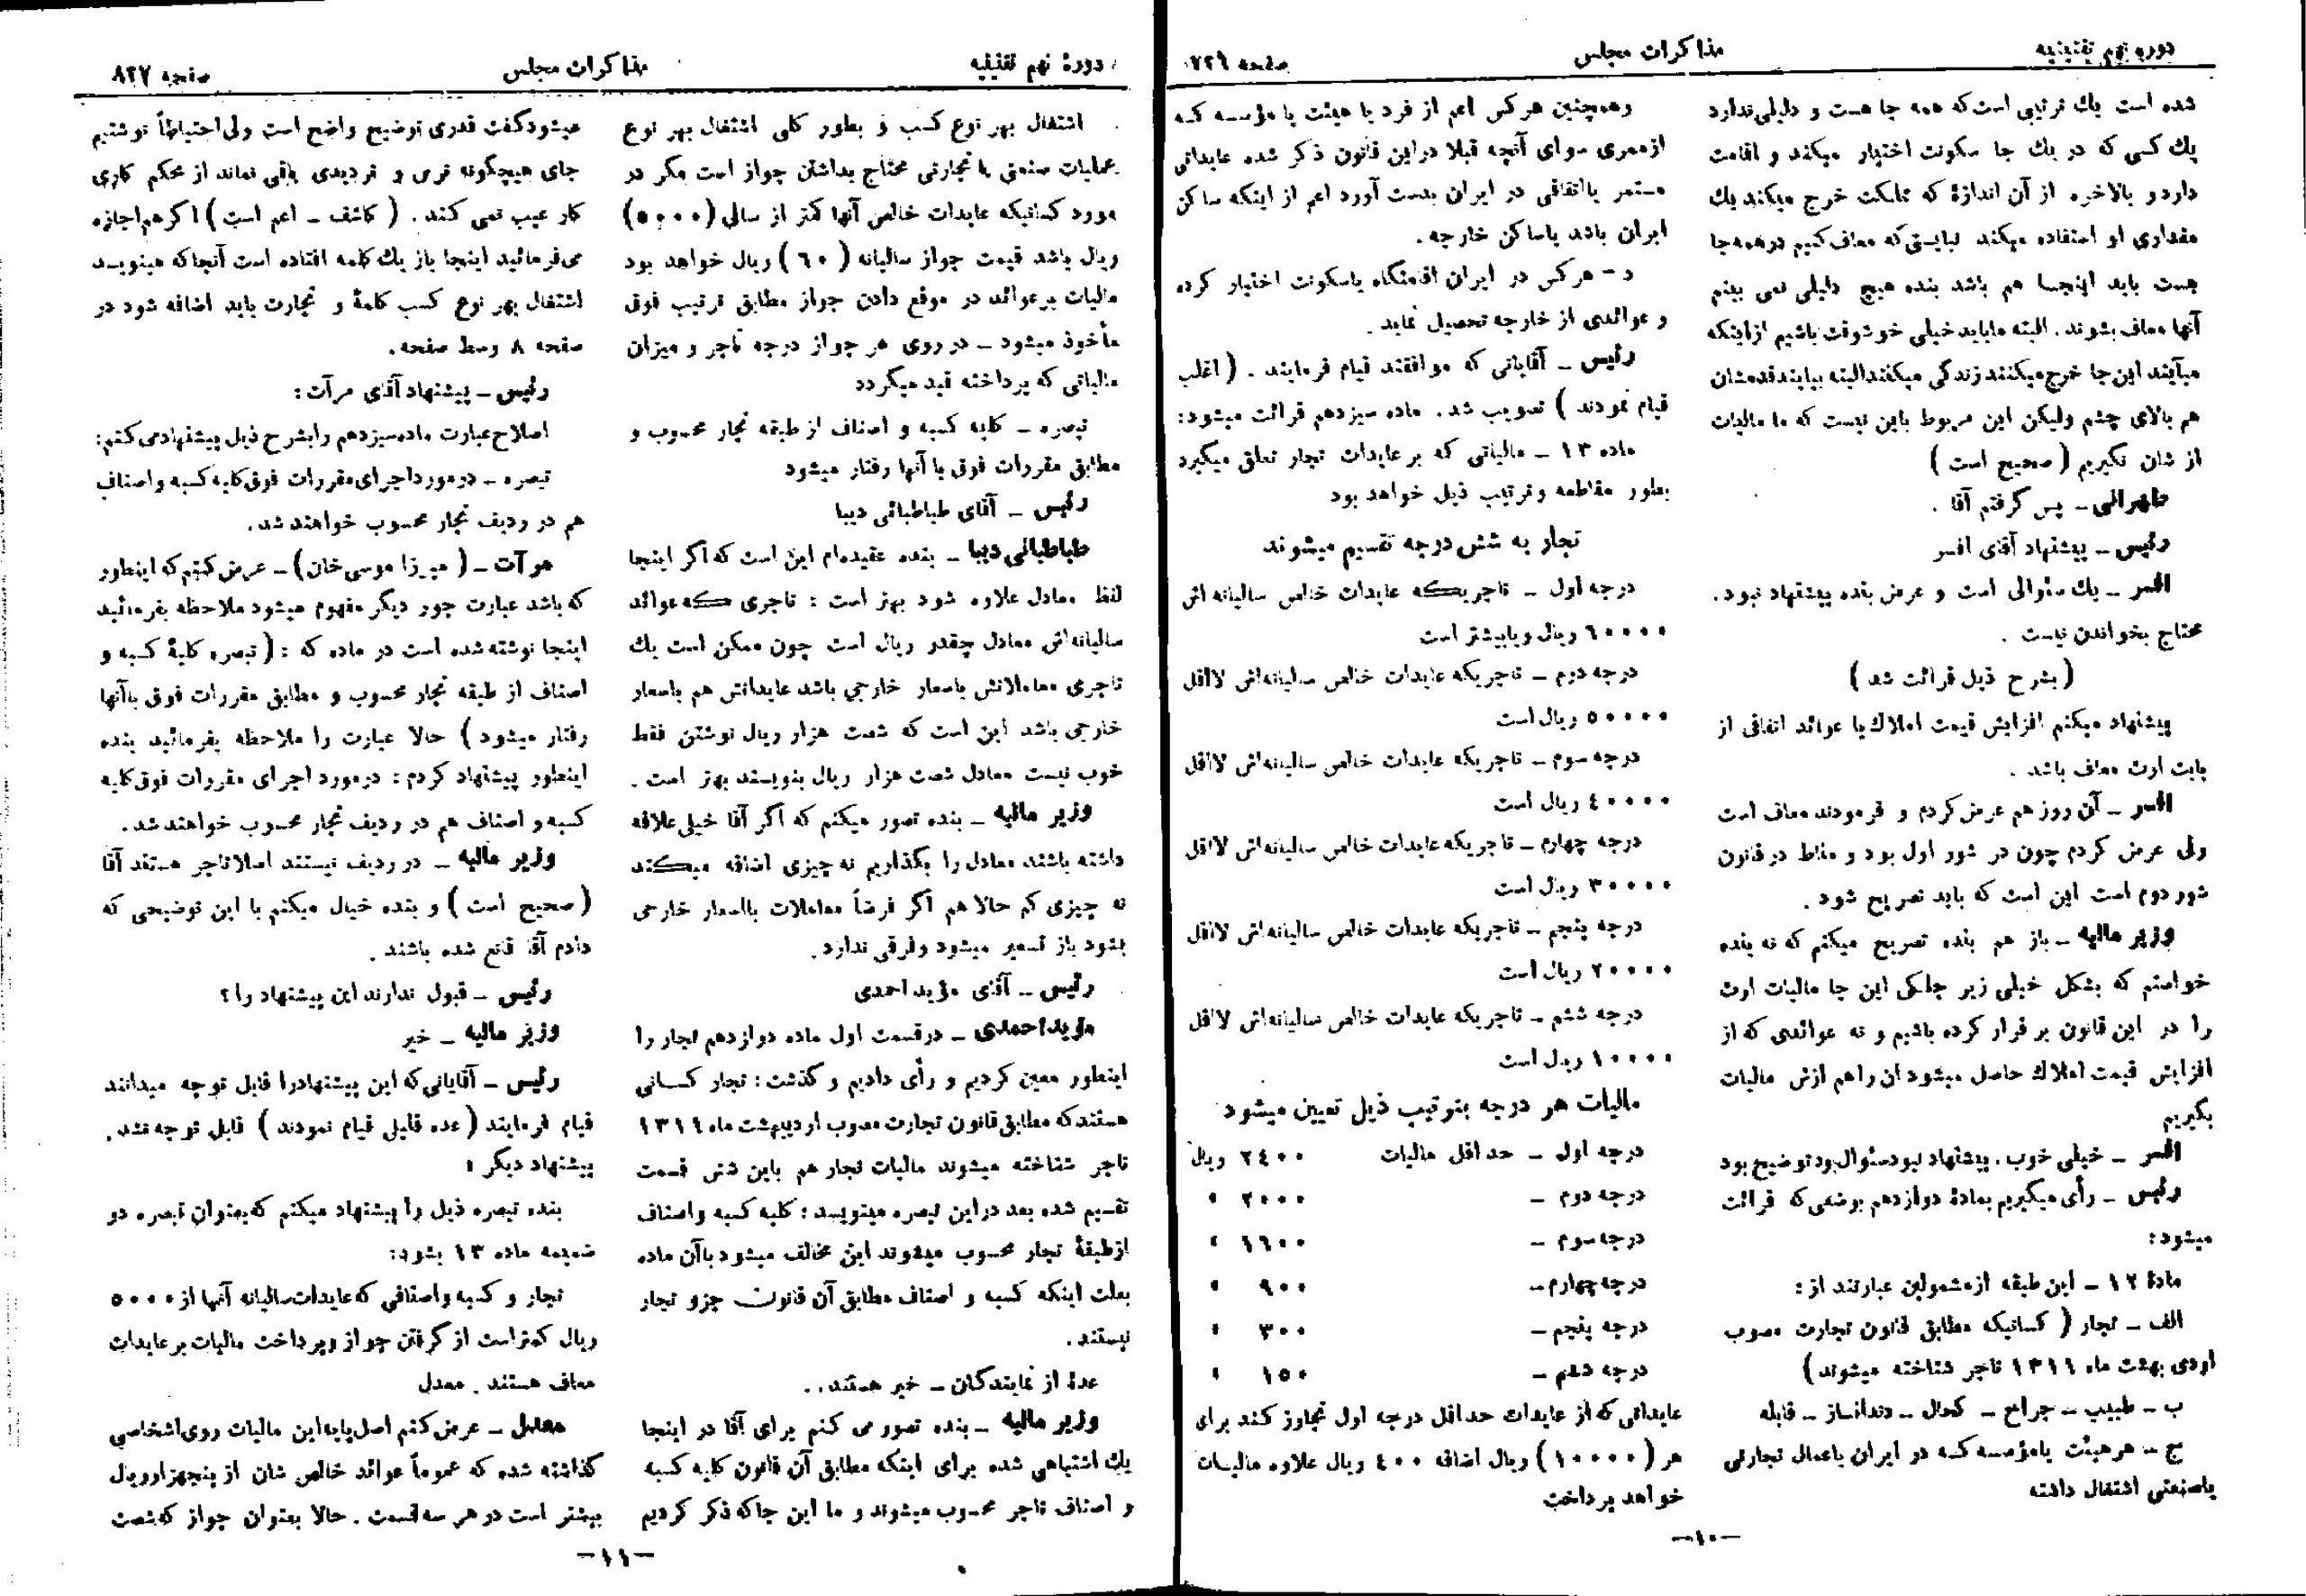 دوره نهم تقنینیه
مذاکرات مجلس
صفحه ۷۲۶
شده است یك ترتیبی است که همه جا هست و دلیلی ندارد
یك کسی که در یك جا سکونت اختیار میکند و اقامت
دارد و بالاخره از آن اندازهٔ که مملکت خرج میکند یك
مقداری او استفاده میکند نبایستی که معاف کنیم در همه جا
هست باید اینجا هم باشد بنده هیچ دلیلی نمی بینم
آنها معاف بشوند. البته ما باید خیلی خوشوقت باشیم از اینکه
میآیند این جا خرج میکنند زندگی میکنند البته بیایند قدمشان
هم بالای چشم ولیکن این مربوط باین نیست که ما مالیات
از شان نگیریم (صحیح است)
طهرانی ـ پس گرفتم آقا .
رئیس ـ پیشنهاد آقای افسر
افسر ـ یك سئوالی است و عرض بنده پیشنهاد نبود.
محتاج بخواندن نیست .
(بشرح ذیل قرائت شد)
پیشنهاد میکنم افزایش قیمت املاك یا عوائد اتفاقی از
بابت ارث معاف باشد .
افسر ـ آن روز هم عرض کردم و فرمودند معاف است
ولی عرض کردم چون در شور اول بود و مناط در قانون
شور دوم است این است که باید تصریح شود .
وزیر مالیه ـ باز هم بنده تصریح میکنم که نه بنده
خواستم که بشکل خیلی زیر جلکی این جا مالیات ارث
را در این قانون برقرار کرده باشیم و نه عوائدی که از
افزایش قیمت املاك حاصل میشود آن را هم ازش مالیات
بگیریم
افسر ـ خیلی خوب . پیشنهاد نبود سئوال بود توضیح بود
رئیس ـ رأی میگیریم بمادهٔ دوازدهم بوضعی که قرائت
میشود:
مادهٔ ۱۲ ـ این طبقه از مشمولین عبارتند از:
الف ـ تجار ( کسانیکه مطابق قانون تجارت مصوب
اردی بهشت ماه ۱۳۱۱ تاجر شناخته میشوند)
ب ـ طبیب ـ جراح ـ کحال ـ دندانساز ـ قابله
ج ـ هر هیئت یا مؤسسه که در ایران باعمال تجارتی
یا صنعتی اشتغال داشته
وهمچنین هر کس اعم از فرد یا هیئت یا مؤسسه که
از ممری سوای آنچه قبلا در این قانون ذکر شده عایداتی
مستمر یا اتفاقی در ایران بدست آورد اعم از اینکه ساکن
ایران باشد یا ساکن خارجه.
د ـ هرکس در ایران اقامتگاه یا سکونت اختیار کرده
و عوائدی از خارجه تحصیل نماید.
رئیس ـ آقایانی که موافقند قیام فرمایند . (اغلب
قیام نمودند) تصویب شد. ماده سیزدهم قرائت میشود:
ماده ۱۳ ـ مالیاتی که بر عایدات تجار تعلق میگیرد
بطور مقاطعه و ترتیب ذیل خواهد بود
تجار به شش درجه تقسیم میشوند
درجه اول ـ تاجریکه عایدات خالص سالیانه اش
۶۰۰۰۰ ریال و یا بیشتر است
درجه دوم ـ تاجریکه عایدات خالص سالیانه‌اش لااقل
۵۰۰۰۰ ریال است
درجه سوم ـ تاجریکه عایدات خالص سالیانه‌اش لااقل
۴۰۰۰۰ ریال است
درجه چهارم ـ تاجریکه عایدات خالص سالیانه‌اش لااقل
۳۰۰۰۰ ریال است
درجه پنجم ـ تاجریکه عایدات خالص سالیانه‌اش لااقل
۲۰۰۰۰ ریال است
درجه ششم ـ تاجریکه عایدات خالص سالیانه‌اش لااقل
۱۰۰۰۰ ریال است
مالیات هر درجه بترتیب ذیل تعیین میشود
درجه اول ـ حداقل مالیات ۲۴۰۰ ریال
درجه دوم ـ ۲۰۰۰ »
درجه سوم ـ ۱۶۰۰ »
درجه چهارم ـ ۹۰۰ »
درجه پنجم ـ ۳۰۰ »
درجه ششم ـ ۱۵۰ »
عایداتی که از عایدات حداقل درجه اول تجاوز کند برای
هر (۱۰۰۰۰) ریال اضافه ۴۰۰ ریال علاوه مالیات
خواهد پرداخت
ـ۱۰ـ
دورهٔ نهم تقنینیه
مذاکرات مجلس
صفحه ۸۲۷
اشتغال بهر نوع کسب و بطور کلی اشتغال بهر نوع
عملیات صنعتی یا تجارتی محتاج بداشتن جواز است مگر در
مورد کسانیکه عایدات خالص آنها کمتر از سالی (۵۰۰۰)
ریال باشد قیمت جواز سالیانه (۶۰) ریال خواهد بود
مالیات بر عوائد در موقع دادن جواز مطابق ترتیب فوق
مأخوذ میشود ـ در روی هر جواز درجه تاجر و میزان
مالیاتی که پرداخته قید میگردد
تبصره ـ کلیه کسبه و اصناف از طبقه تجار محسوب و
مطابق مقررات فوق با آنها رفتار میشود
رئیس ـ آقای طباطبائی دیبا
طباطبائی دیبا ـ بنده عقیده‌ام این است که اگر اینجا
لفظ معادل علاوه شود بهتر است : تاجری که عوائد
سالیانه‌اش معادل چقدر ریال است چون ممکن است یك
تاجری معاملاتش باسعار خارجی باشد عایداتش هم باسعار
خارجی باشد این است که شصت هزار ریال نوشتن فقط
خوب نیست معادل شصت هزار ریال بنویسند بهتر است .
وزیر مالیه ـ بنده تصور میکنم که اگر آقا خیلی علاقه
داشته باشند معادل را بگذاریم نه چیزی اضافه میکند
نه چیزی کم حالا هم اگر فرضاً معاملات باسعار خارجی
بشود باز تسعیر میشود و فرقی ندارد.
رئیس ـ آقای مؤید احمدی
مؤید احمدی ـ در قسمت اول ماده دوازدهم تجار را
اینطور معین کردیم و رأی دادیم و گذشت: تجار کسانی
هستند که مطابق قانون تجارت مصوب اردیبهشت ماه ۱۳۱۱
تاجر شناخته میشوند مالیات تجار هم باین شش قسمت
تقسیم شده بعد در این تبصره مینویسد: کلیه کسبه و اصناف
از طبقهٔ تجار محسوب میشوند این مخالف میشود با آن ماده
بعلت اینکه کسبه و اصناف مطابق آن قانون جزو تجار
نیستند .
عدهٔ از نمایندگان ـ خیر هستند..
وزیر مالیه ـ بنده تصور می کنم برای آقا در اینجا
یك اشتباهی شده برای اینکه مطابق آن قانون کلیه کسبه
و اصناف تاجر محسوب میشوند و ما این جا که ذکر کردیم
میشود گفت قدری توضیح واضح است ولی احتیاطاً نوشتیم
جای هیچگونه ترس و تردیدی باقی نماند از محکم کاری
کار عیب نمی کند. (کاشف ـ اعم است) اگر هم اجازه
می‌فرمائید اینجا باز یك کلمه افتاده است آنجا که مینویسد
اشتغال بهر نوع کسب کلمهٔ و تجارت باید اضافه شود در
صفحه ۸ وسط صفحه.
رئیس ـ پیشنهاد آقای مرآت:
اصلاح عبارت ماده سیزدهم را بشرح ذیل پیشنهاد می کنم:
تبصره ـ در مورد اجرای مقررات فوق کلیه کسبه و اصناف
هم در ردیف تجار محسوب خواهند شد.
مرآت ـ (میرزا موسی خان) ـ عرض کنم که اینطور
که باشد عبارت جور دیگر مفهوم میشود ملاحظه بفرمائید
اینجا نوشته شده است در ماده که : (تبصره کلیهٔ کسبه و
اصناف از طبقه تجار محسوب و مطابق مقررات فوق با آنها
رفتار میشود) حالا عبارت را ملاحظه بفرمائید بنده
اینطور پیشنهاد کردم: در مورد اجرای مقررات فوق کلیه
کسبه و اصناف هم در ردیف تجار محسوب خواهند شد.
وزیر مالیه ـ در ردیف نیستند اصلا تاجر هستند آقا
(صحیح است) و بنده خیال میکنم با این توضیحی که
دادم آقا قانع شده باشند .
رئیس ـ قبول ندارند این پیشنهاد را؟
وزیر مالیه ـ خیر
رئیس ـ آقایانی که این پیشنهاد را قابل توجه میدانند
قیام فرمایند (عده قلیلی قیام نمودند) قابل توجه نشد.
پیشنهاد دیگر :
بنده تبصره ذیل را پیشنهاد میکنم که بعنوان تبصره دو
ضمیمه ماده ۱۳ بشود:
تجار و کسبه و اصنافی که عایدات سالیانه آنها از ۵۰۰۰
ریال کمتر است از گرفتن جواز و پرداخت مالیات بر عایدات
معاف هستند . معدل
معدل ـ عرض کنم اصل پایه این مالیات روی اشخاصی
گذاشته شده که عموماً عوائد خالص شان از پنجهزار ریال
بیشتر است در هر سه قسمت . حالا بعنوان جواز که شصت
ـ۱۱ـ